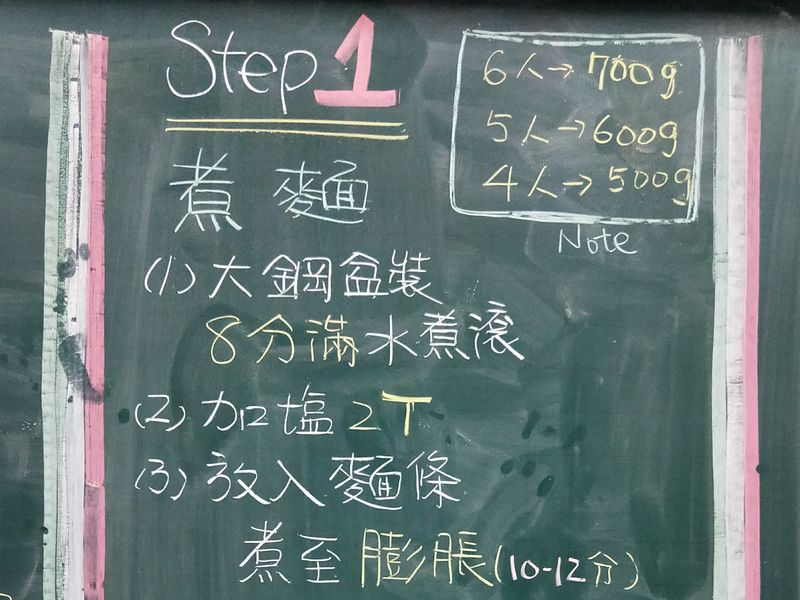 Step 1
6人→700g
5人→600g
4人→500g
Note
煮麵
(1)大鋼盆裝
8分滿水煮滾
(2)加塩2T
(3)放入麵條
煮至膨脹(10-12分)